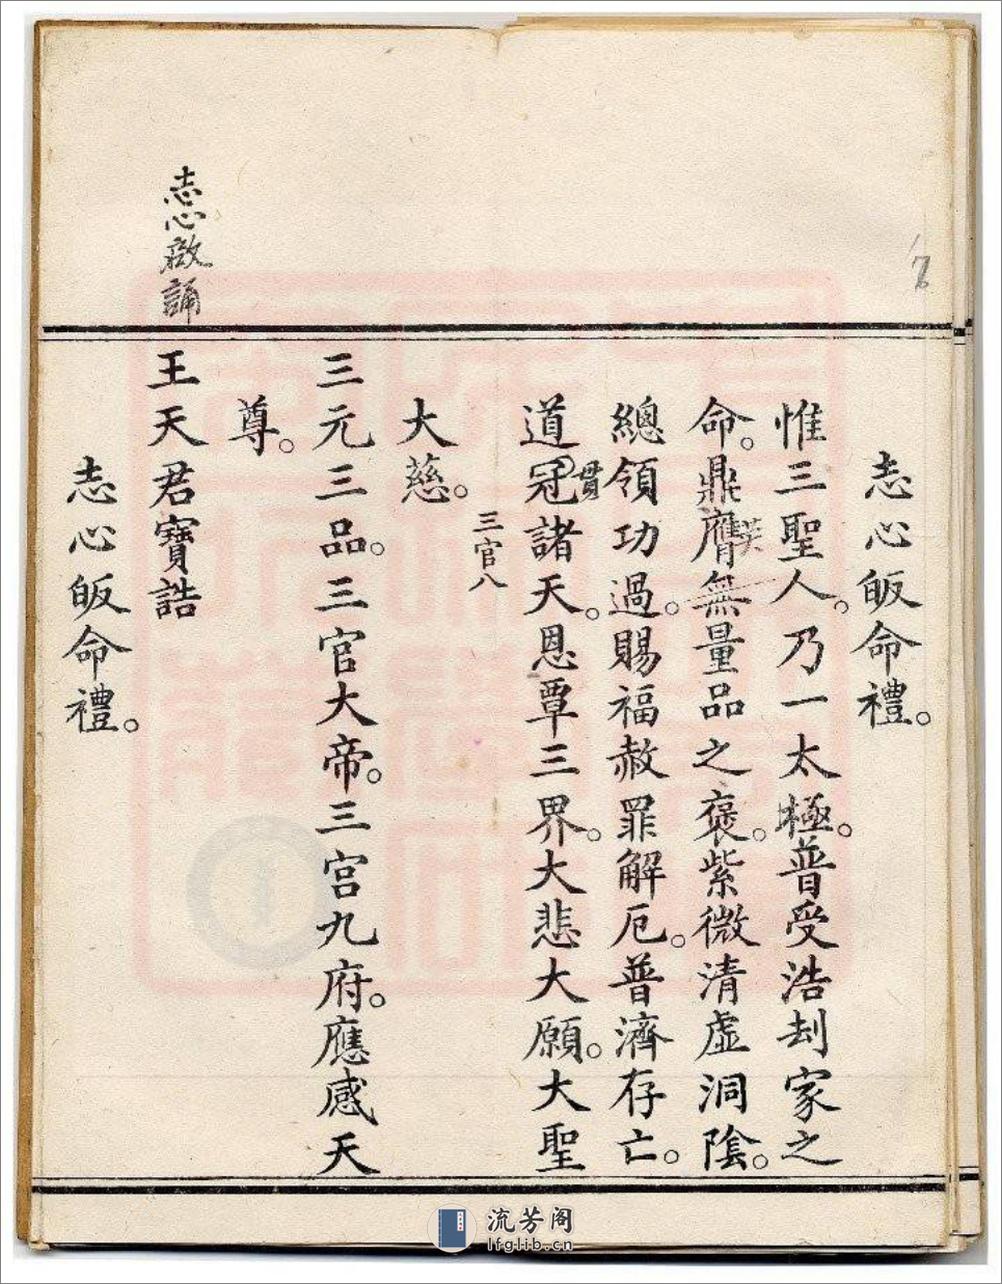 志心皈命禮。
惟三聖人。乃一太極。普受浩刦家之
命。鼎膺無量品之褒。紫微清虛洞陰。
英
總領功過。賜福赦罪解厄。普濟存亡。
道冠諸天。恩覃三界。大悲大願。大聖
貫
三官八
大慈。
三元三品。三官大帝。三宮九府。應感天
尊。
志心啟誦
王天君寶誥
志心皈命禮。
流芳阁
lfglib.cn